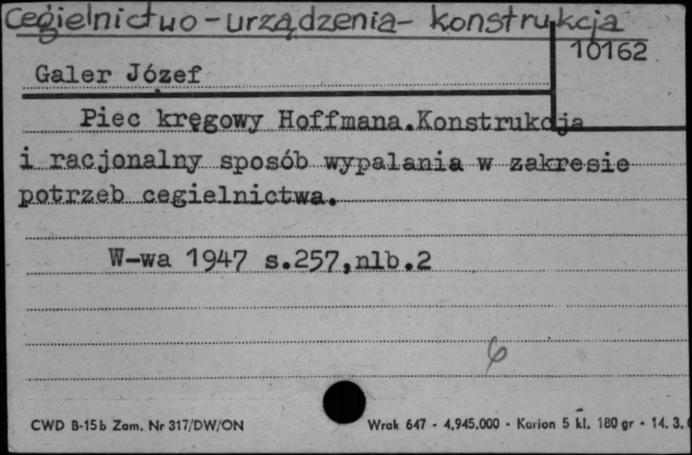 Cegielnictwo - urządzenia - konstrukcja
10162
Galer Józef
Piec kręgowy Hoffmana.Konstrukcja
i racjonalny sposób wypalania w zakresie
potrzeb cegielnictwa.
W-wa 1947 s.257,nlb.2
6
CWD B-15b Zam. Nr 317/DW/ON
Wrak 647 - 4.945.000 - Karion 5 kl. 180 gr - 14. 3.